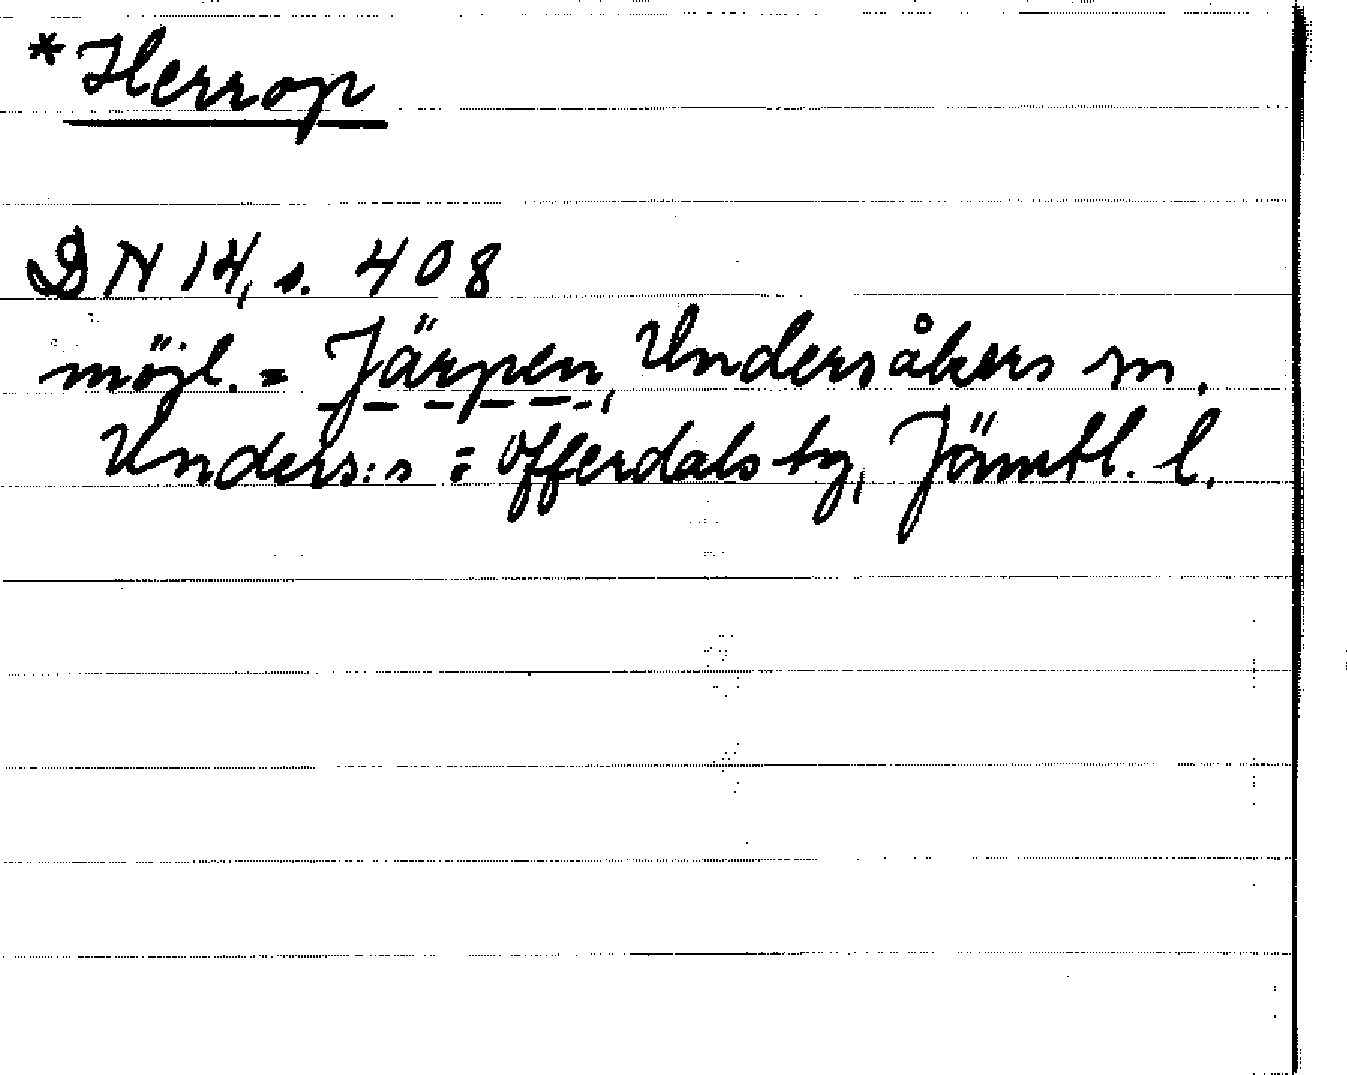 *Herrop
DN 14, s. 408
möjl. = Järpen, Undersåkers sn.
Unders:s = Offerdals tg, Jämtl. l.